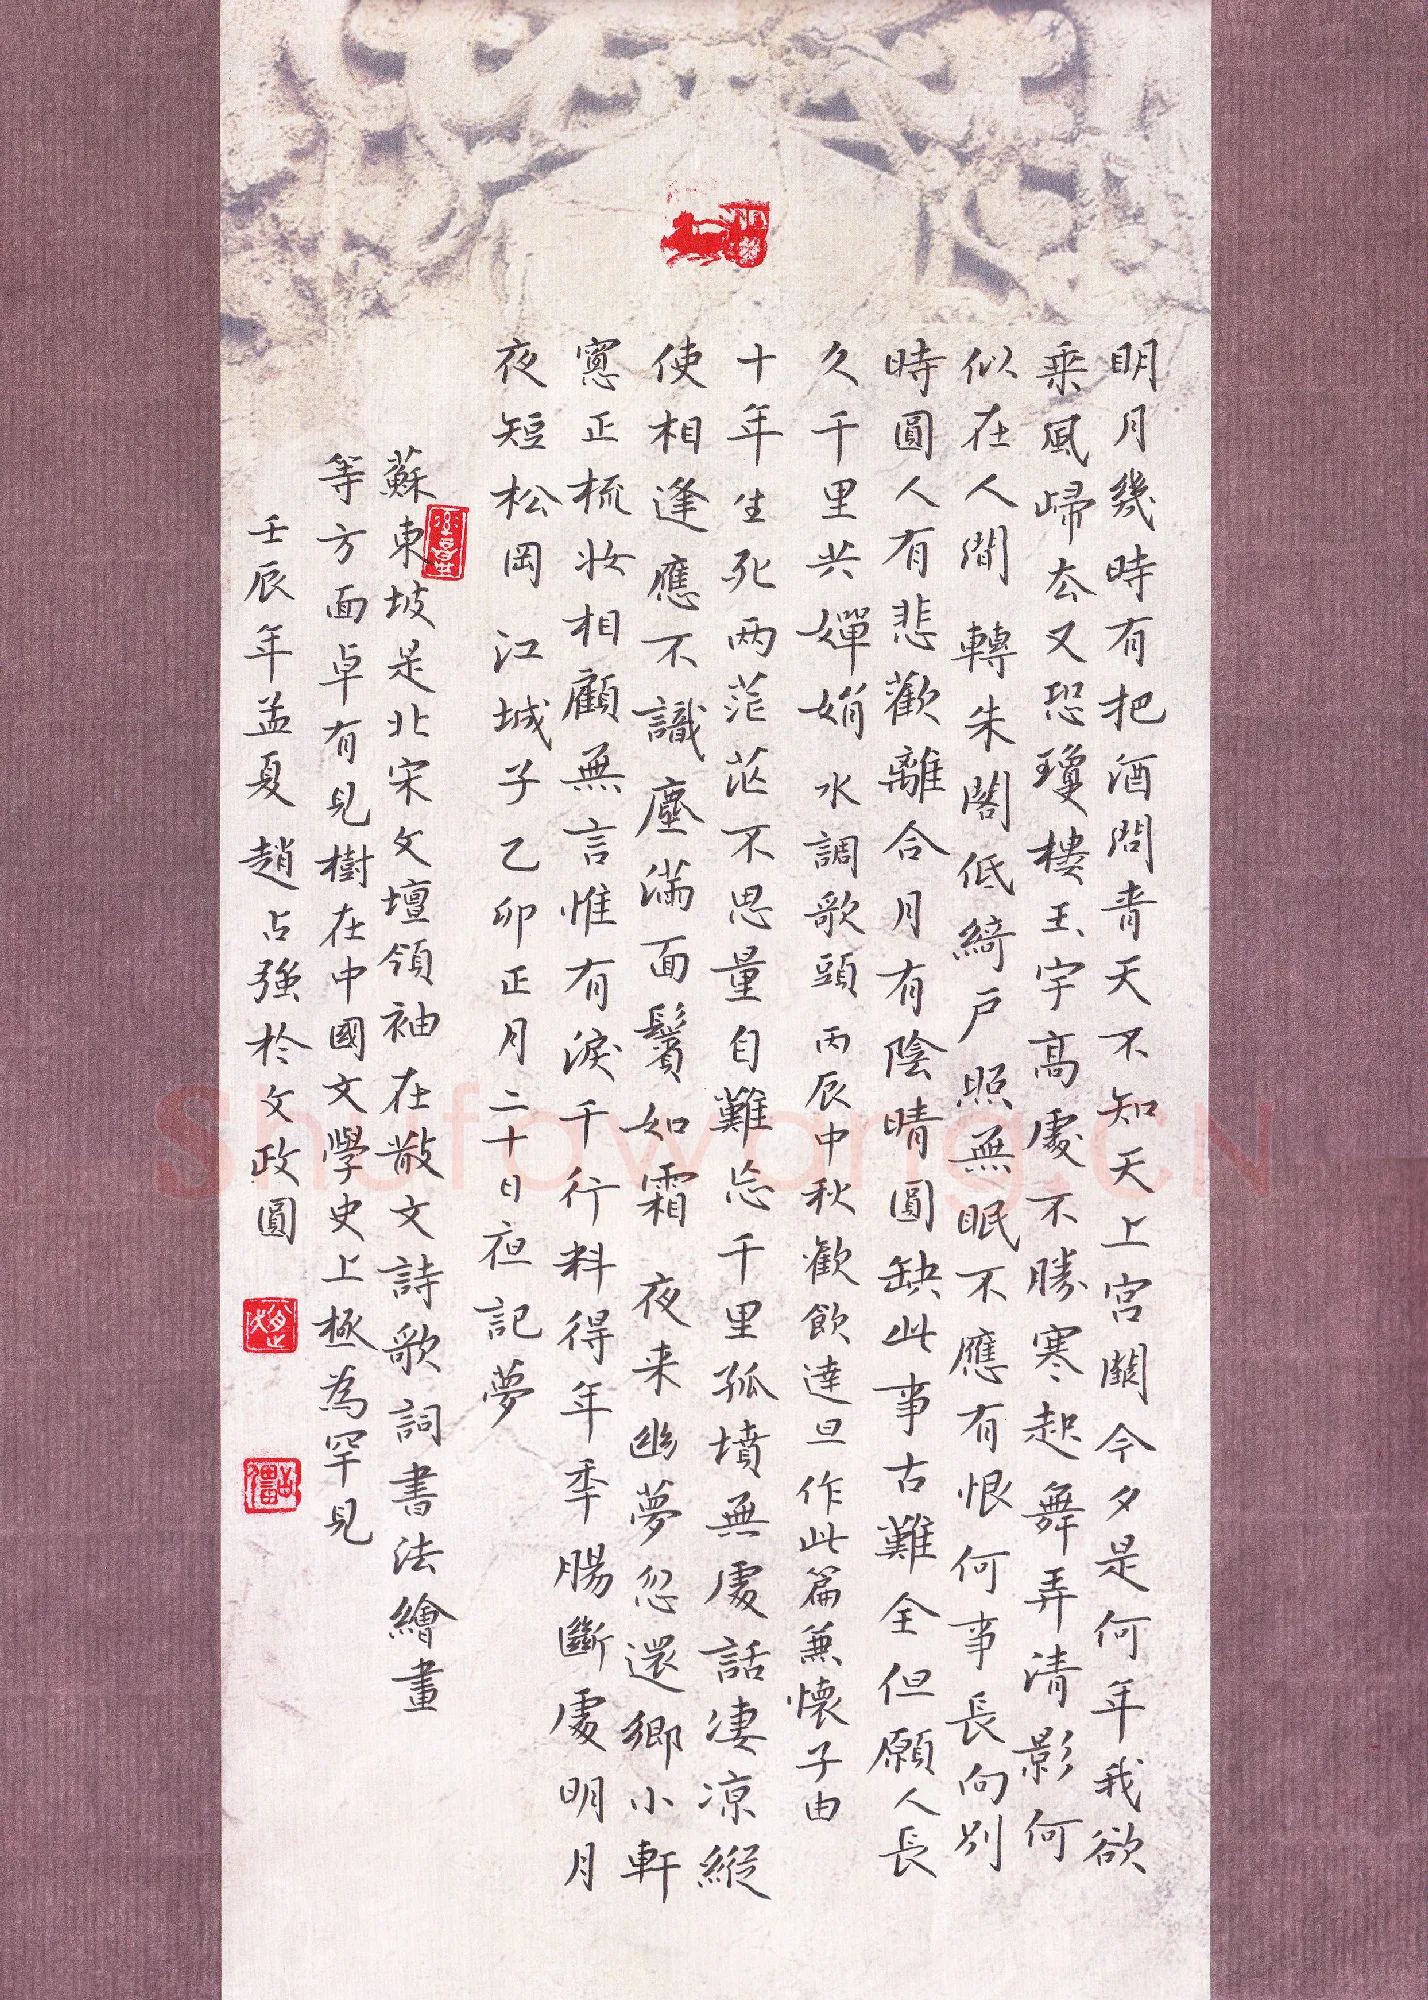 明月幾時有把酒問青天不知天上宮闕今夕是何年我欲
乘風歸去又恐瓊樓玉宇高處不勝寒起舞弄清影何
似在人間 轉朱閣低綺戶照無眠不應有恨何事長向別
時圓人有悲歡離合月有陰晴圓缺此事古難全但願人長
久千里共嬋娟 水調歌頭 丙辰中秋歡飲達旦作此篇兼懷子由
十年生死两茫茫不思量自難忘千里孤墳無處話凄凉縱
使相逢應不識塵滿面鬢如霜 夜来幽夢忽還鄉小軒
窻正梳妝相顧無言惟有淚千行料得年年腸斷處明月
夜短松岡 江城子乙卯正月二十日夜記夢
蘇東坡是北宋文壇領袖在散文詩歌詞書法繪畫
等方面卓有見樹在中國文學史上極為罕見
壬辰年孟夏 趙占強於文政圓
Shufawang.CN